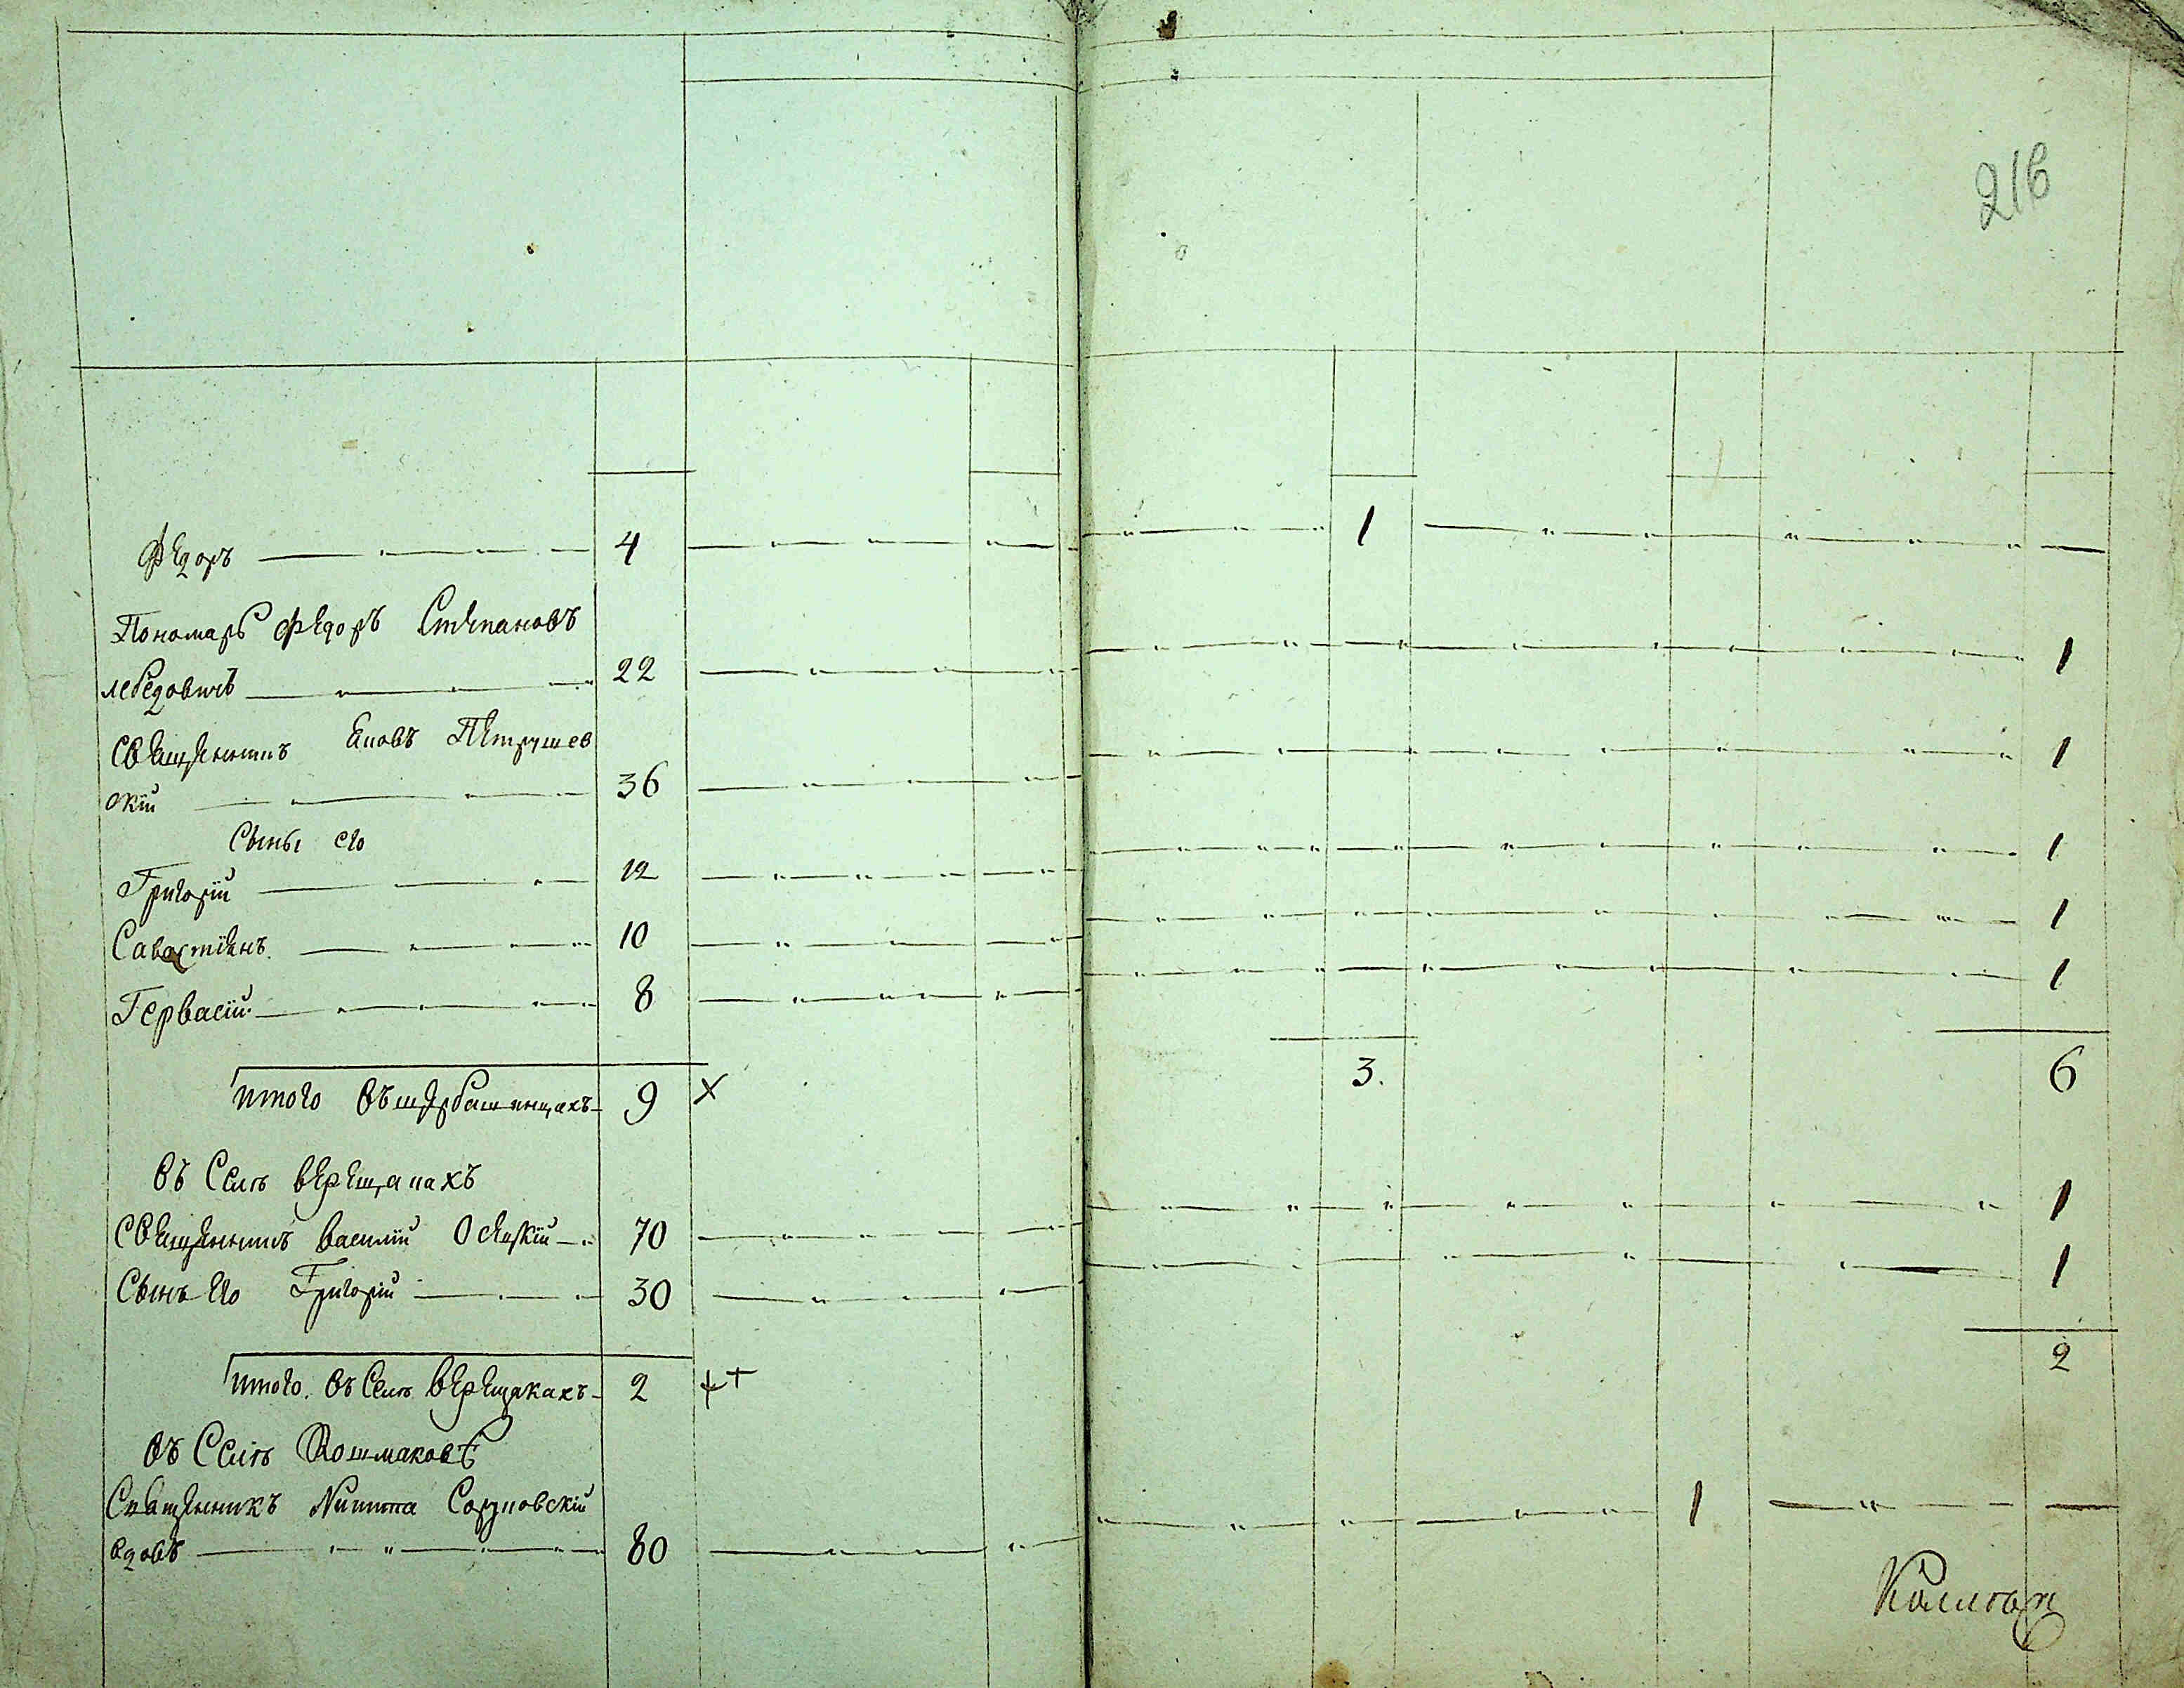 216
Федоръ 4 1
Пономарь Федоръ Степановъ
лебедовичъ 22 1
Священникъ Яковъ Петрушев
скій 36 1
Сыны его
Григорій 12 1
Савастіянъ 10 1
Гервасій 8 1
итого въ щербашенцахъ 9 х 3. 6
въ Селѣ верещакахъ
Священникъ василій 70 1
Сынъ его Григорій 30 1
итого. въ Селѣ верещакахъ 2 2
въ Селѣ Кошмаковѣ
Священникъ Никита
вдовъ 80 1